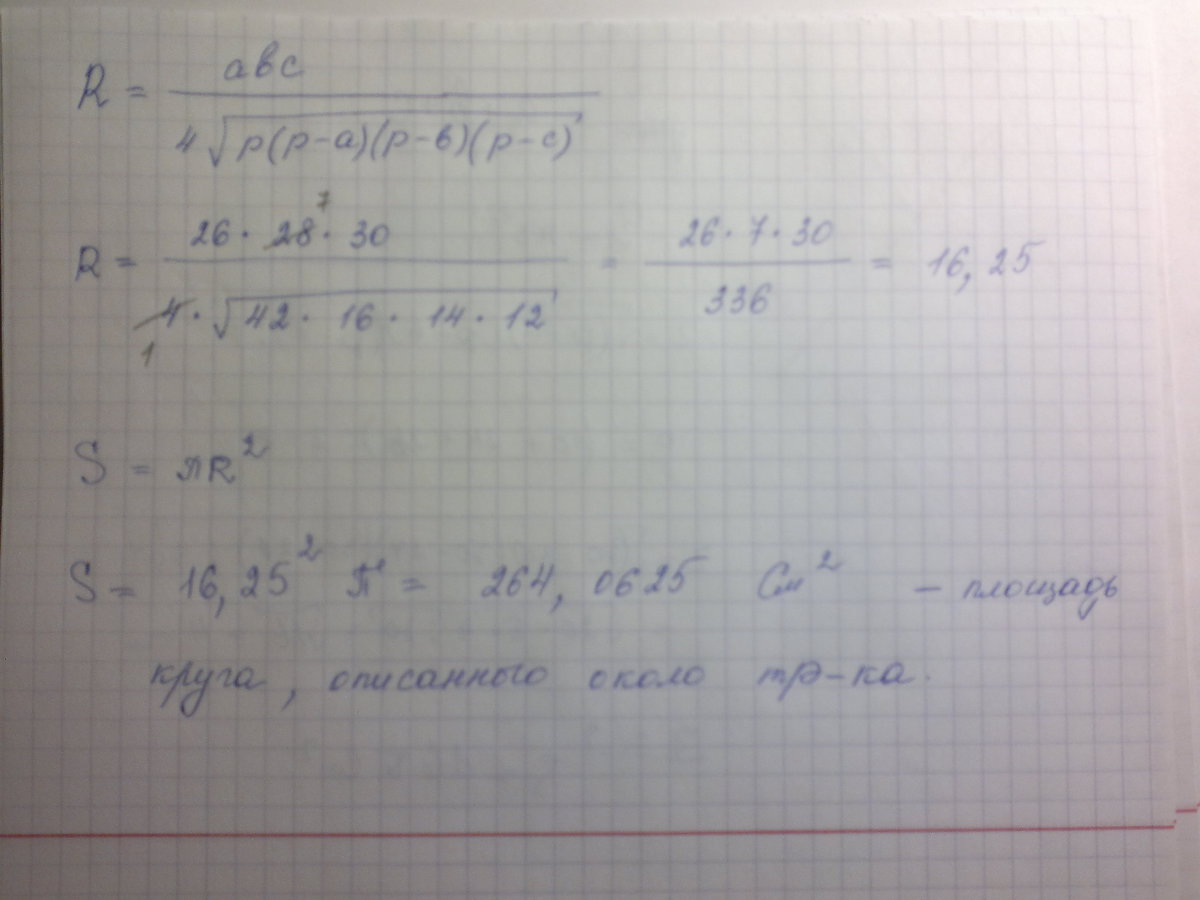 R = abc / 4√p(p-a)(p-b)(p-c)
R = 26 · 28 · 30 / 4 · √42 · 16 · 14 · 12 = 26 · 7 · 30 / 336 = 16,25
7
1
S = πR²
S = 16,25² π = 264,0625 см² — площадь
круга, описанного около тр-ка.